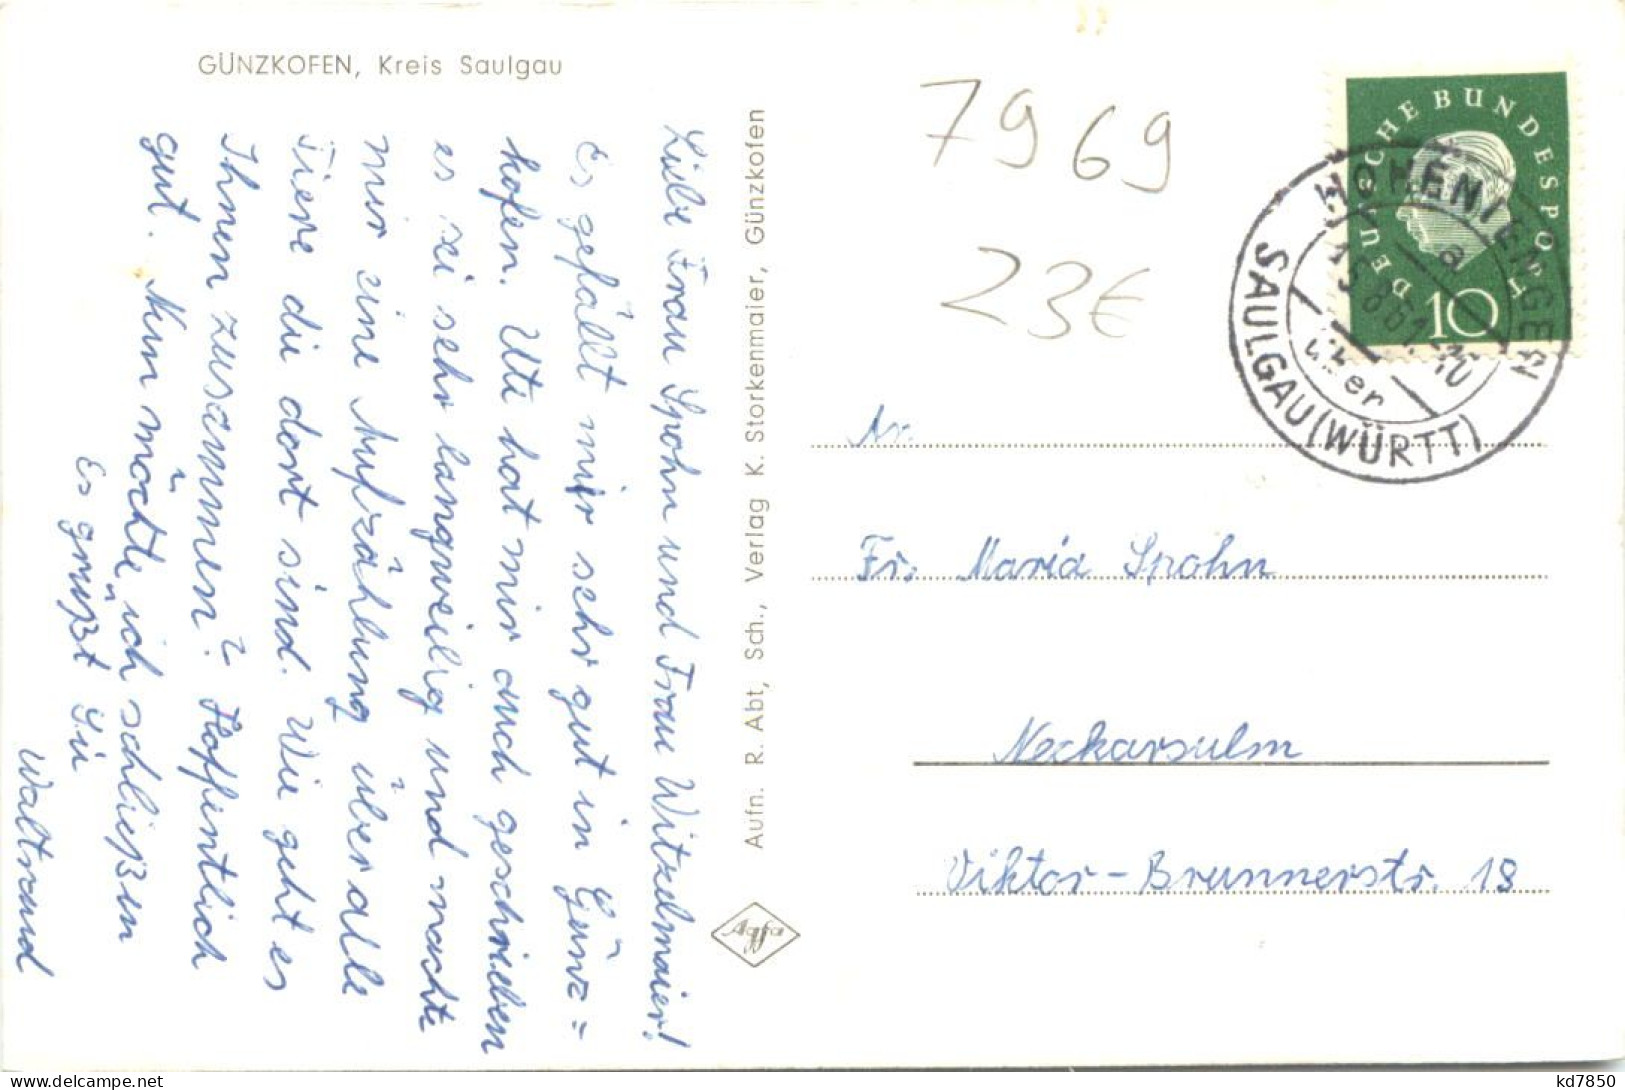 GÜNZKOFEN, Kreis Saulgau
Liebe Frau Spohn und Frau Witzelmaier!
Es gefällt mir sehr gut in Günz=
kofen. Ute hat mir auch geschrieben
es sei sehr langweilig und machte
mir eine Aufzählung über alle
Tiere die dort sind. Wie geht es
Ihnen zusammen? Hoffentlich
gut. Nun möchte ich schließen
Es grüßt Sie
Waltraud
Aufn. R. Abt, Sch., Verlag K. Storkenmaier, Günzkofen
Agfa
7969
23€
DEUTSCHE BUNDESPOST
10
HOHENTENGEN
a
15.8.61.-10
über
SAULGAU (WÜRTT)
An.
Fr. Maria Spohn
Neckarsulm
Viktor-Brunnerstr. 18
kd7850